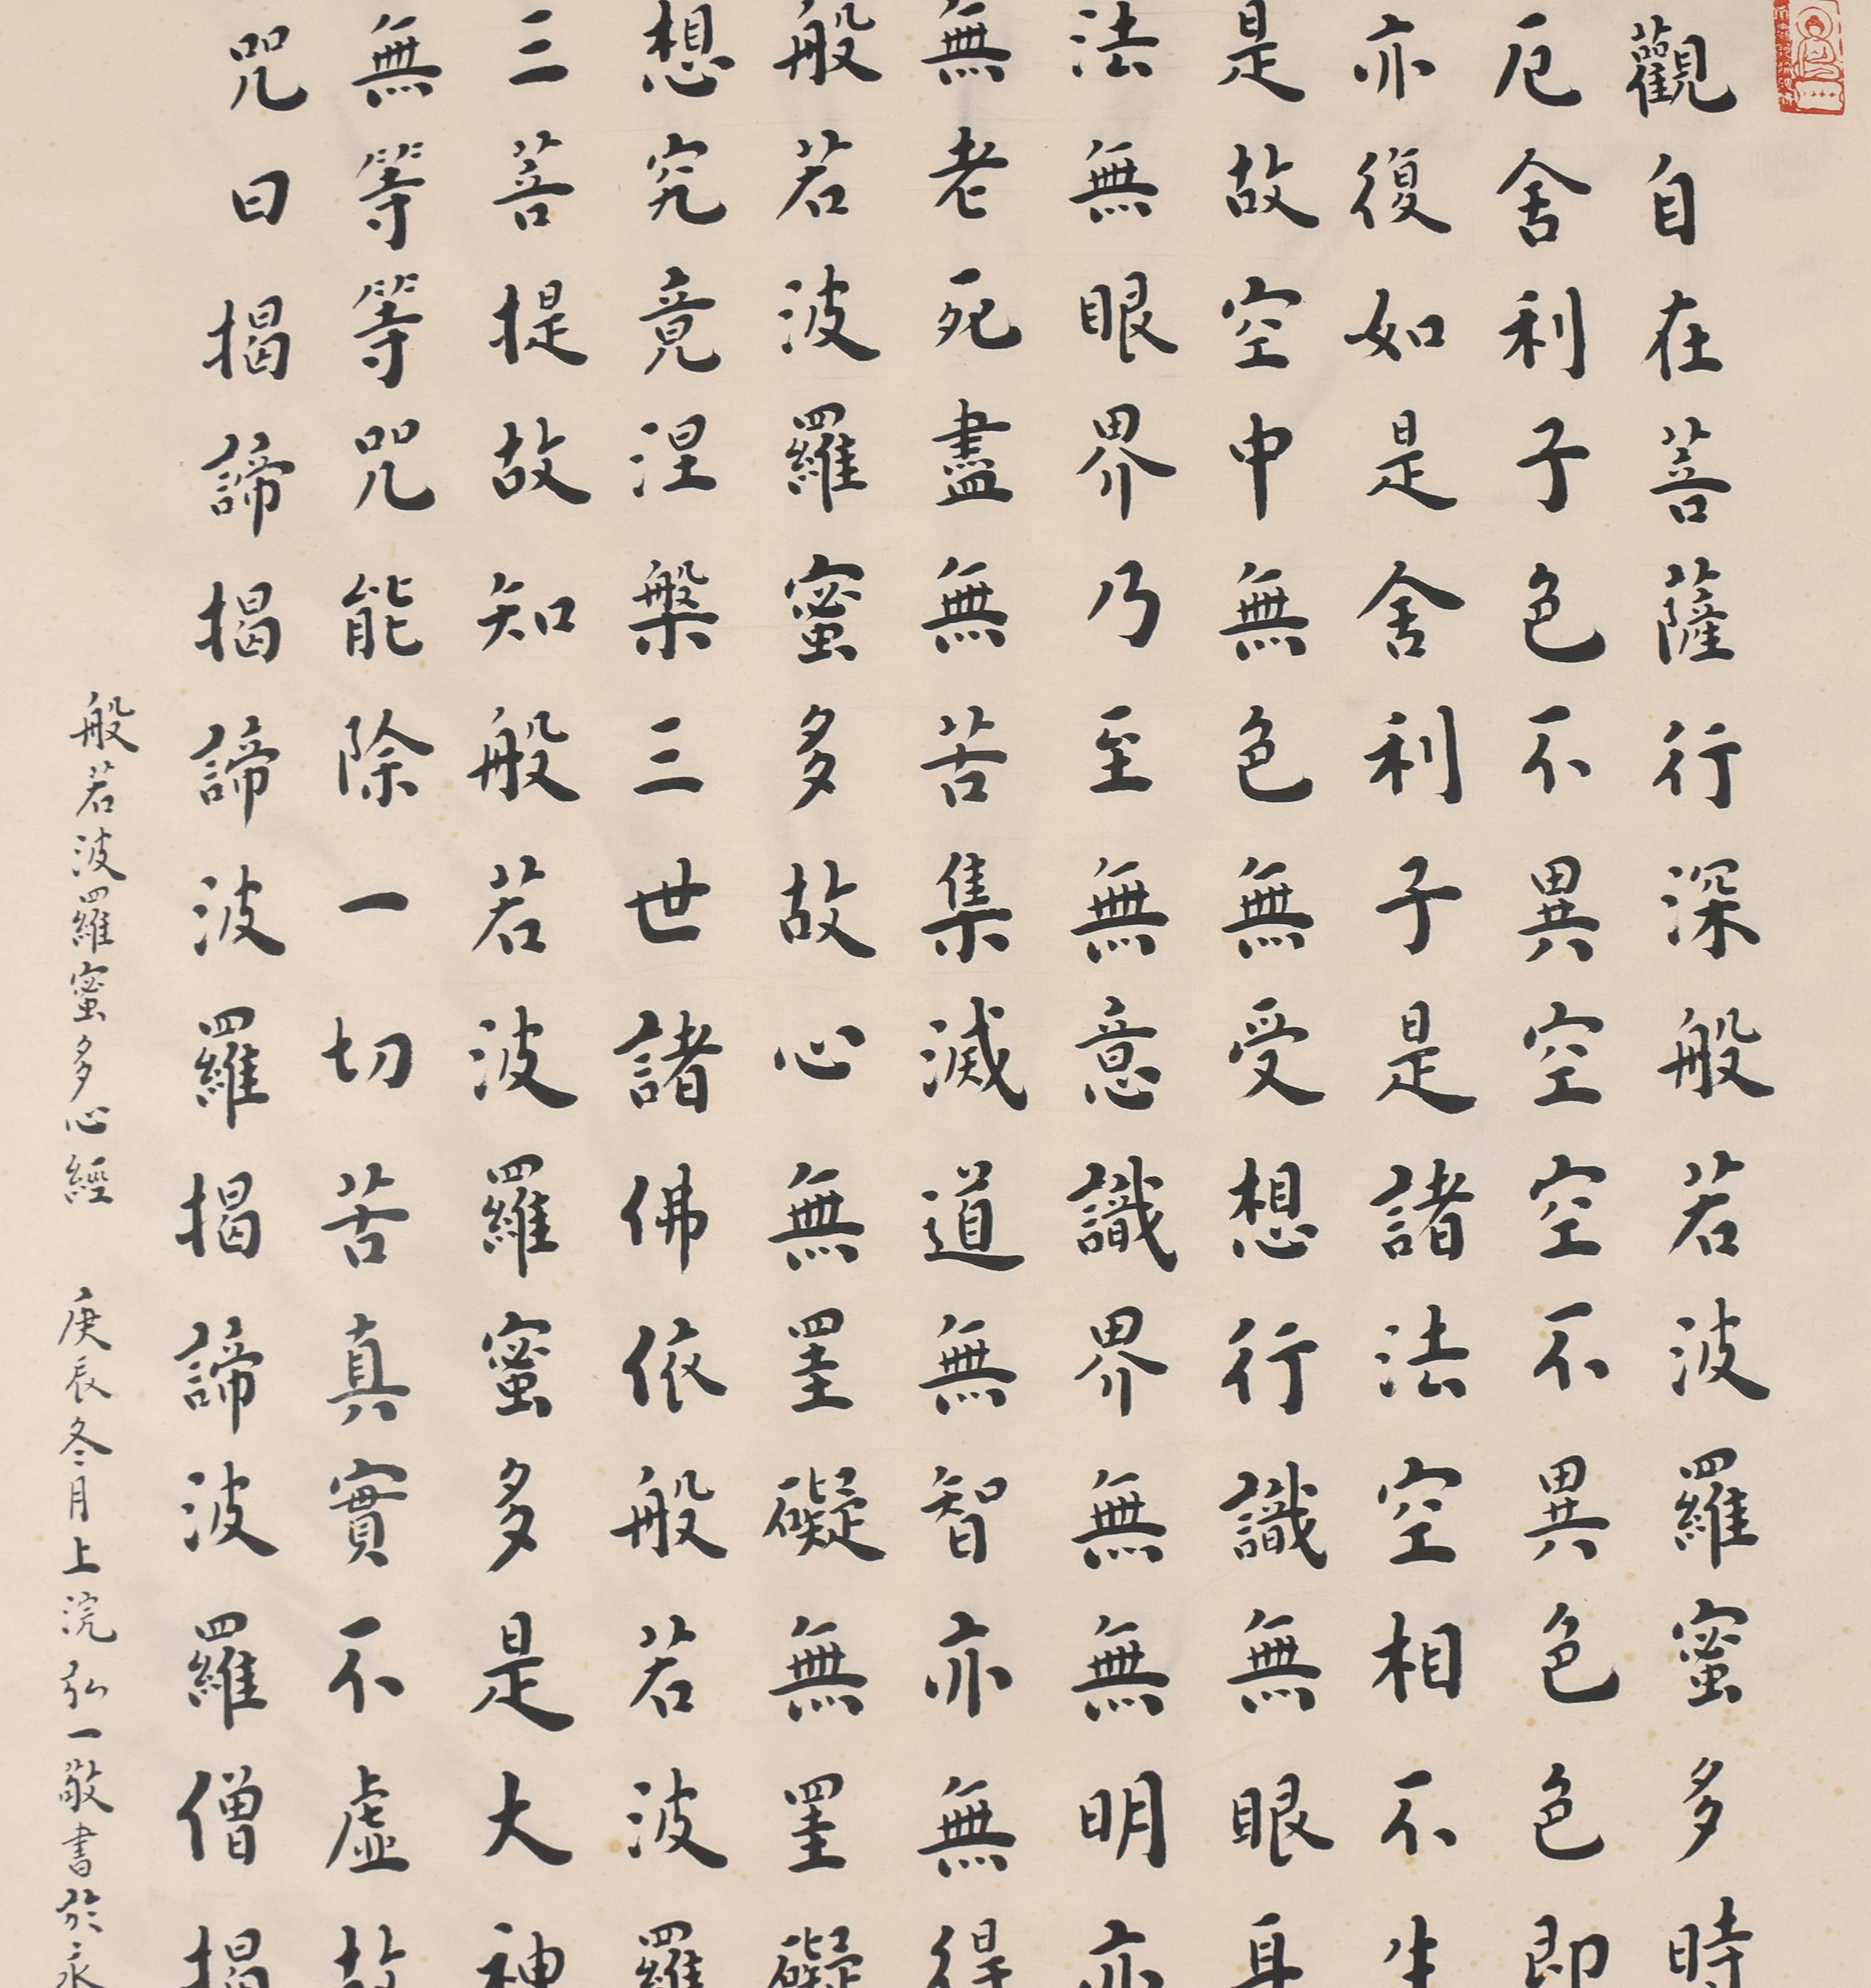 觀自在菩薩行深般若波羅蜜多時
厄舍利子色不異空空不異色色即
亦復如是舍利子是諸法空相不生
是故空中無色無受想行識無眼耳
法無眼界乃至無意識界無無明亦
無老死盡無苦集滅道無智亦無得
般若波羅蜜多故心無罣礙無罣礙
想究竟涅槃三世諸佛依般若波羅
三菩提故知般若波羅蜜多是大神
無等等咒能除一切苦真實不虛故
咒曰揭諦揭諦波羅揭諦波羅僧揭
般若波羅蜜多心經 庚辰冬月上浣弘一敬書於永